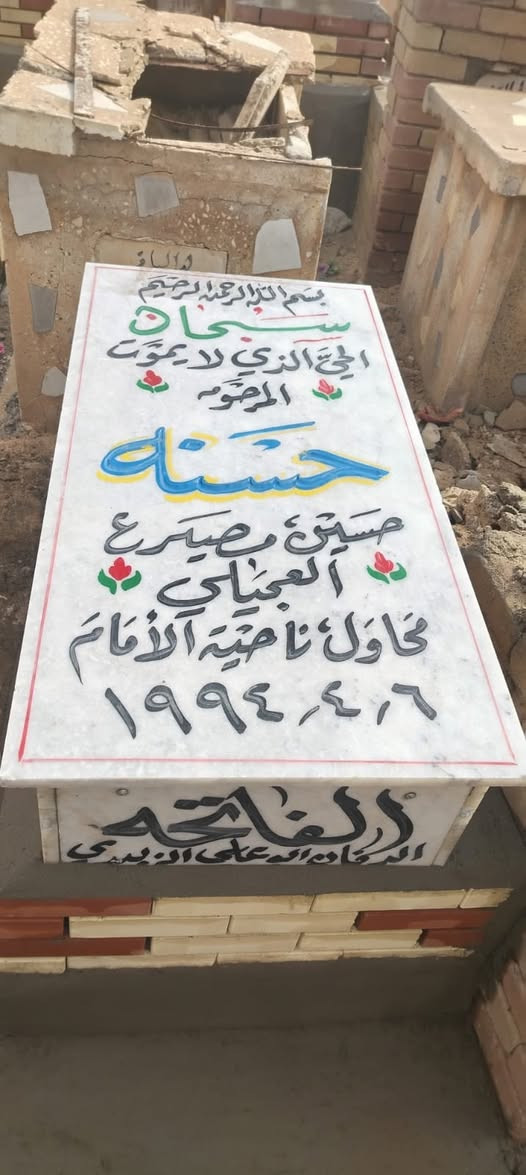 بسم الله الرحمن الرحيم
سبحان
الحي الذي لا يموت
المرحومه
حسنه
حسين مصيرع
العجيلي
محاويل ناحية الأمام
١٩٩٤/٤/٦
الفاتحه
الدفان ابو علي الزبيدي